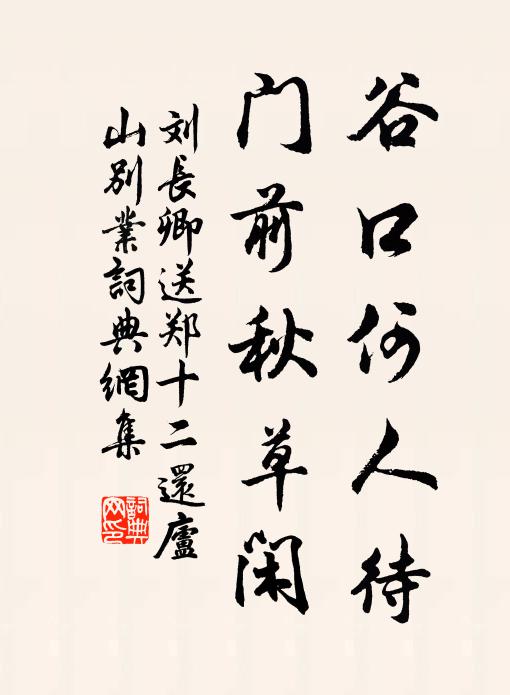 谷口何人待
门前秋草闲
刘長卿送郑十二還廬
山别業詞典網集
詞典
网印